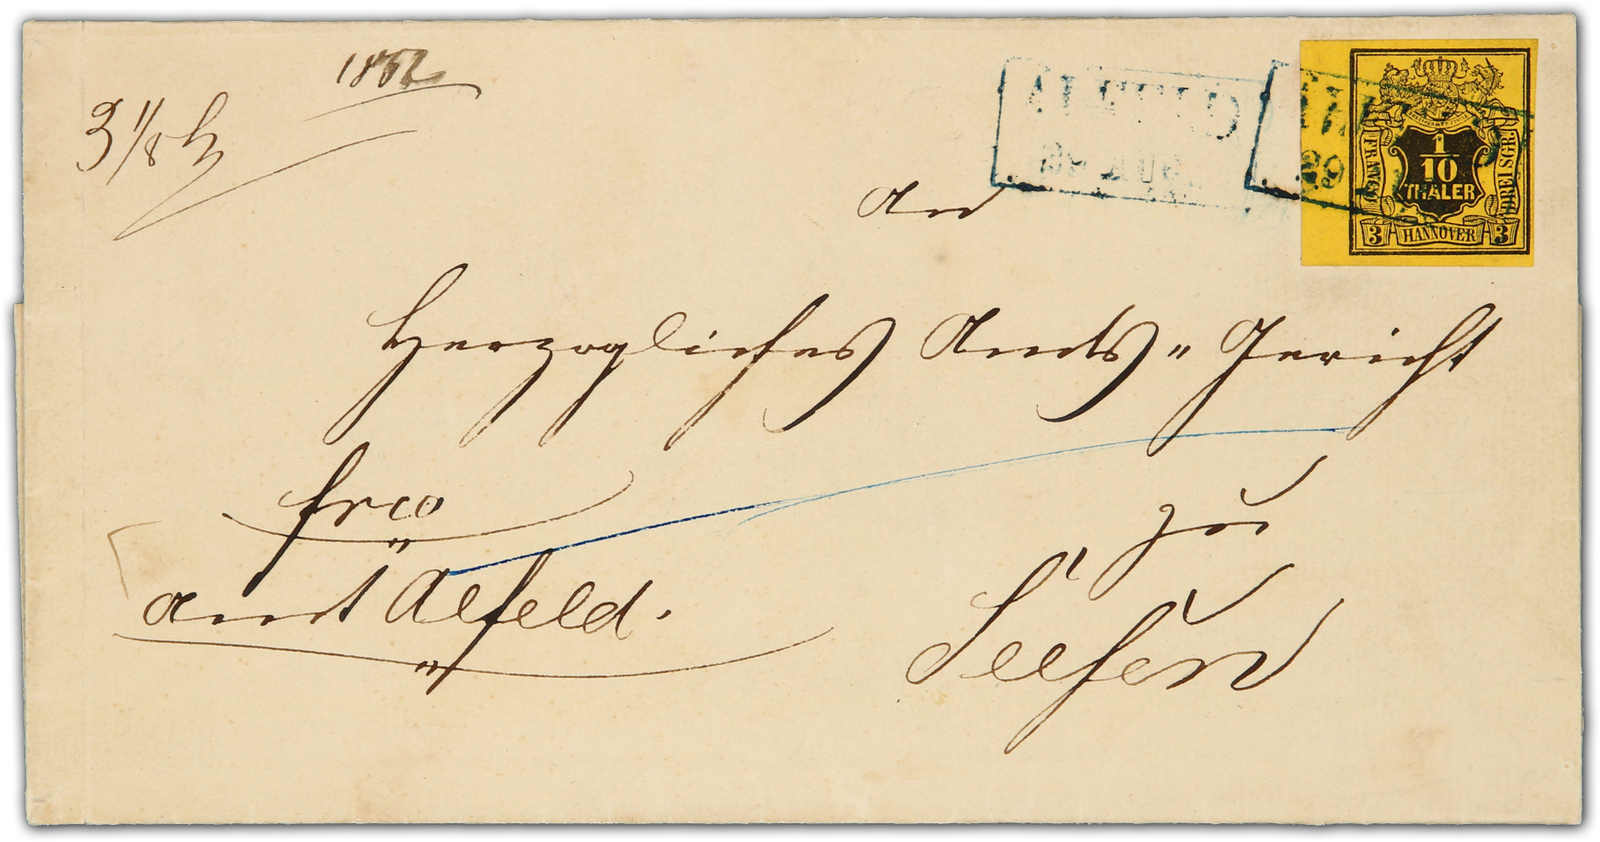 1852
3 1/8
ALFELD
29 AUG.
29
1/10
THALER
FRANCO
DREI S.GR.
3 HANNOVER 3
An
Herzogliches Amts=Gericht
frco
zu
Amt Alfeld.
Seesen